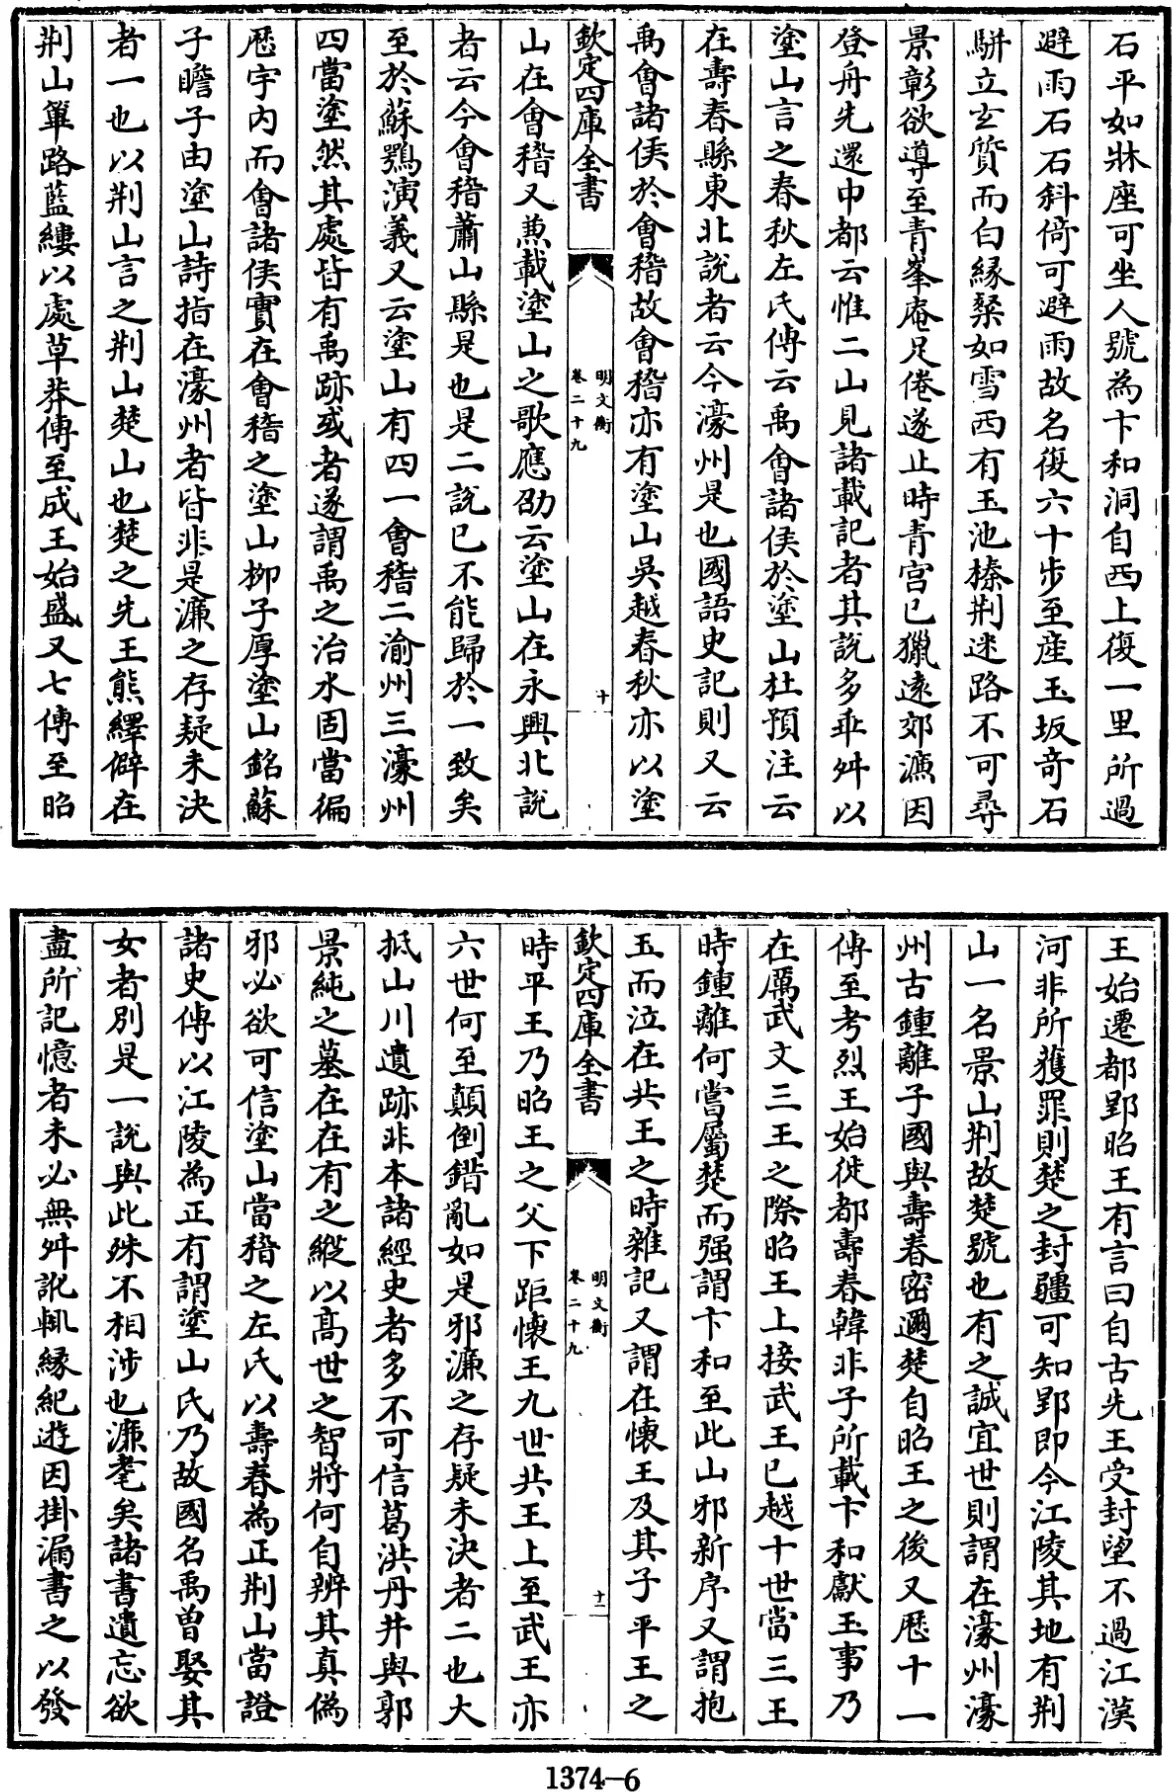 石平如牀座可坐人號為卞和洞自西上復一里所過
避雨石石斜倚可避雨故名復六十步至産玉坂奇石
駢立玄質而白縁粲如雪西有玉池榛荆迷路不可尋
景彰欲導至青峯庵足倦遂止時青宫已獵遠郊濂因
登舟先還中都云惟二山見諸載記者其説多乖舛以
塗山言之春秋左氏傳云禹會諸侯於塗山杜預注云
在壽春縣東北説者云今濠州是也國語史記則又云
禹會諸侯於會稽故會稽亦有塗山吳越春秋亦以塗
欽定四庫全書
明文衡
卷二十九
十
山在會稽又兼載塗山之歌應劭云塗山在永興北説
者云今會稽蕭山縣是也是二説已不能歸於一致矣
至於蘇鶚演義又云塗山有四一會稽二渝州三濠州
四當塗然其處皆有禹跡或者遂謂禹之治水固當徧
厯宇内而會諸侯實在會稽之塗山栁子厚塗山銘蘇
子瞻子由塗山詩指在濠州者皆非是濂之存疑未決
者一也以荆山言之荆山楚山也楚之先王熊繹僻在
荆山篳路藍縷以處草莽傳至成王始盛又七傳至昭
王始遷都郢昭王有言曰自古先王受封望不過江漢
河非所獲罪則楚之封疆可知郢即今江陵其地有荆
山一名景山荆故楚號也有之誠宜世則謂在濠州濠
州古鍾離子國與壽春密邇楚自昭王之後又厯十一
傳至考烈王始徙都壽春韓非子所載卞和獻玉事乃
在厲武文三王之際昭王上接武王已越十世當三王
時鍾離何嘗屬楚而强謂卞和至此山邪新序又謂抱
玉而泣在共王之時雜記又謂在懐王及其子平王之
欽定四庫全書
明文衡
卷二十九
十一
時平王乃昭王之父下距懐王九世共王上至武王亦
六世何至顛倒錯亂如是邪濂之存疑未決者二也大
抵山川遺跡非本諸經史者多不可信葛洪丹井與郭
景純之墓在在有之縱以高世之智將何自辨其真偽
邪必欲可信塗山當稽之左氏以壽春為正荆山當證
諸史傳以江陵為正有謂塗山氏乃故國名禹曽娶其
女者别是一説與此殊不相涉也濂耄矣諸書遺忘欲
盡所記憶者未必無舛訛輒縁紀逰因掛漏書之以發
1374-6